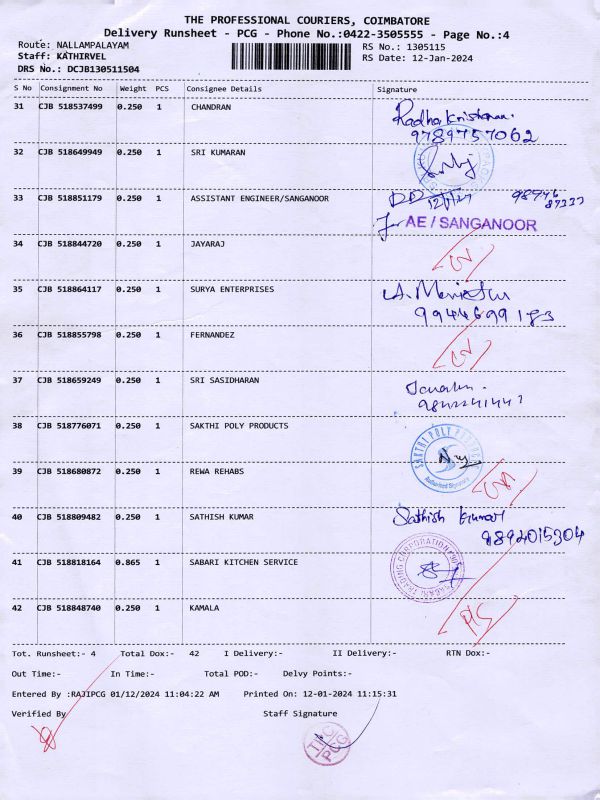 THE PROFESSIONAL COURIERS, COIMBATORE
Delivery Runsheet - PCG - Phone No.:0422-3505555 - Page No.:4
Route: NALLAMPALAYAM RS No.: 1305115
Staff: KATHIRVEL RS Date: 12-Jan-2024
DRS No.: DCJB130511504
S No Consignment No Weight PCS Consignee Details Signature
31 CJB 518537499 0.250 1 CHANDRAN Radhakrishnan.
9789757062
32 CJB 518649949 0.250 1 SRI KUMARAN
33 CJB 518851179 0.250 1 ASSISTANT ENGINEER/SANGANOOR
12/1/24
For AE / SANGANOOR
34 CJB 518844720 0.250 1 JAYARAJ
35 CJB 518864117 0.250 1 SURYA ENTERPRISES
9944699183
36 CJB 518855798 0.250 1 FERNANDEZ
37 CJB 518659249 0.250 1 SRI SASIDHARAN
38 CJB 518776071 0.250 1 SAKTHI POLY PRODUCTS
SAKTHI POLY
Authorised Signatory
39 CJB 518680872 0.250 1 REWA REHABS
40 CJB 518809482 0.250 1 SATHISH KUMAR Sathish kumar
9894015304
41 CJB 518818164 0.865 1 SABARI KITCHEN SERVICE
TRADING CORPORATION
42 CJB 518848740 0.250 1 KAMALA
Tot. Runsheet:- 4 Total Dox:- 42 I Delivery:- II Delivery:- RTN Dox:-
Out Time:- In Time:- Total POD:- Delvy Points:-
Entered By :RAJIPCG 01/12/2024 11:04:22 AM Printed On: 12-01-2024 11:15:31
Verified By Staff Signature
PCG